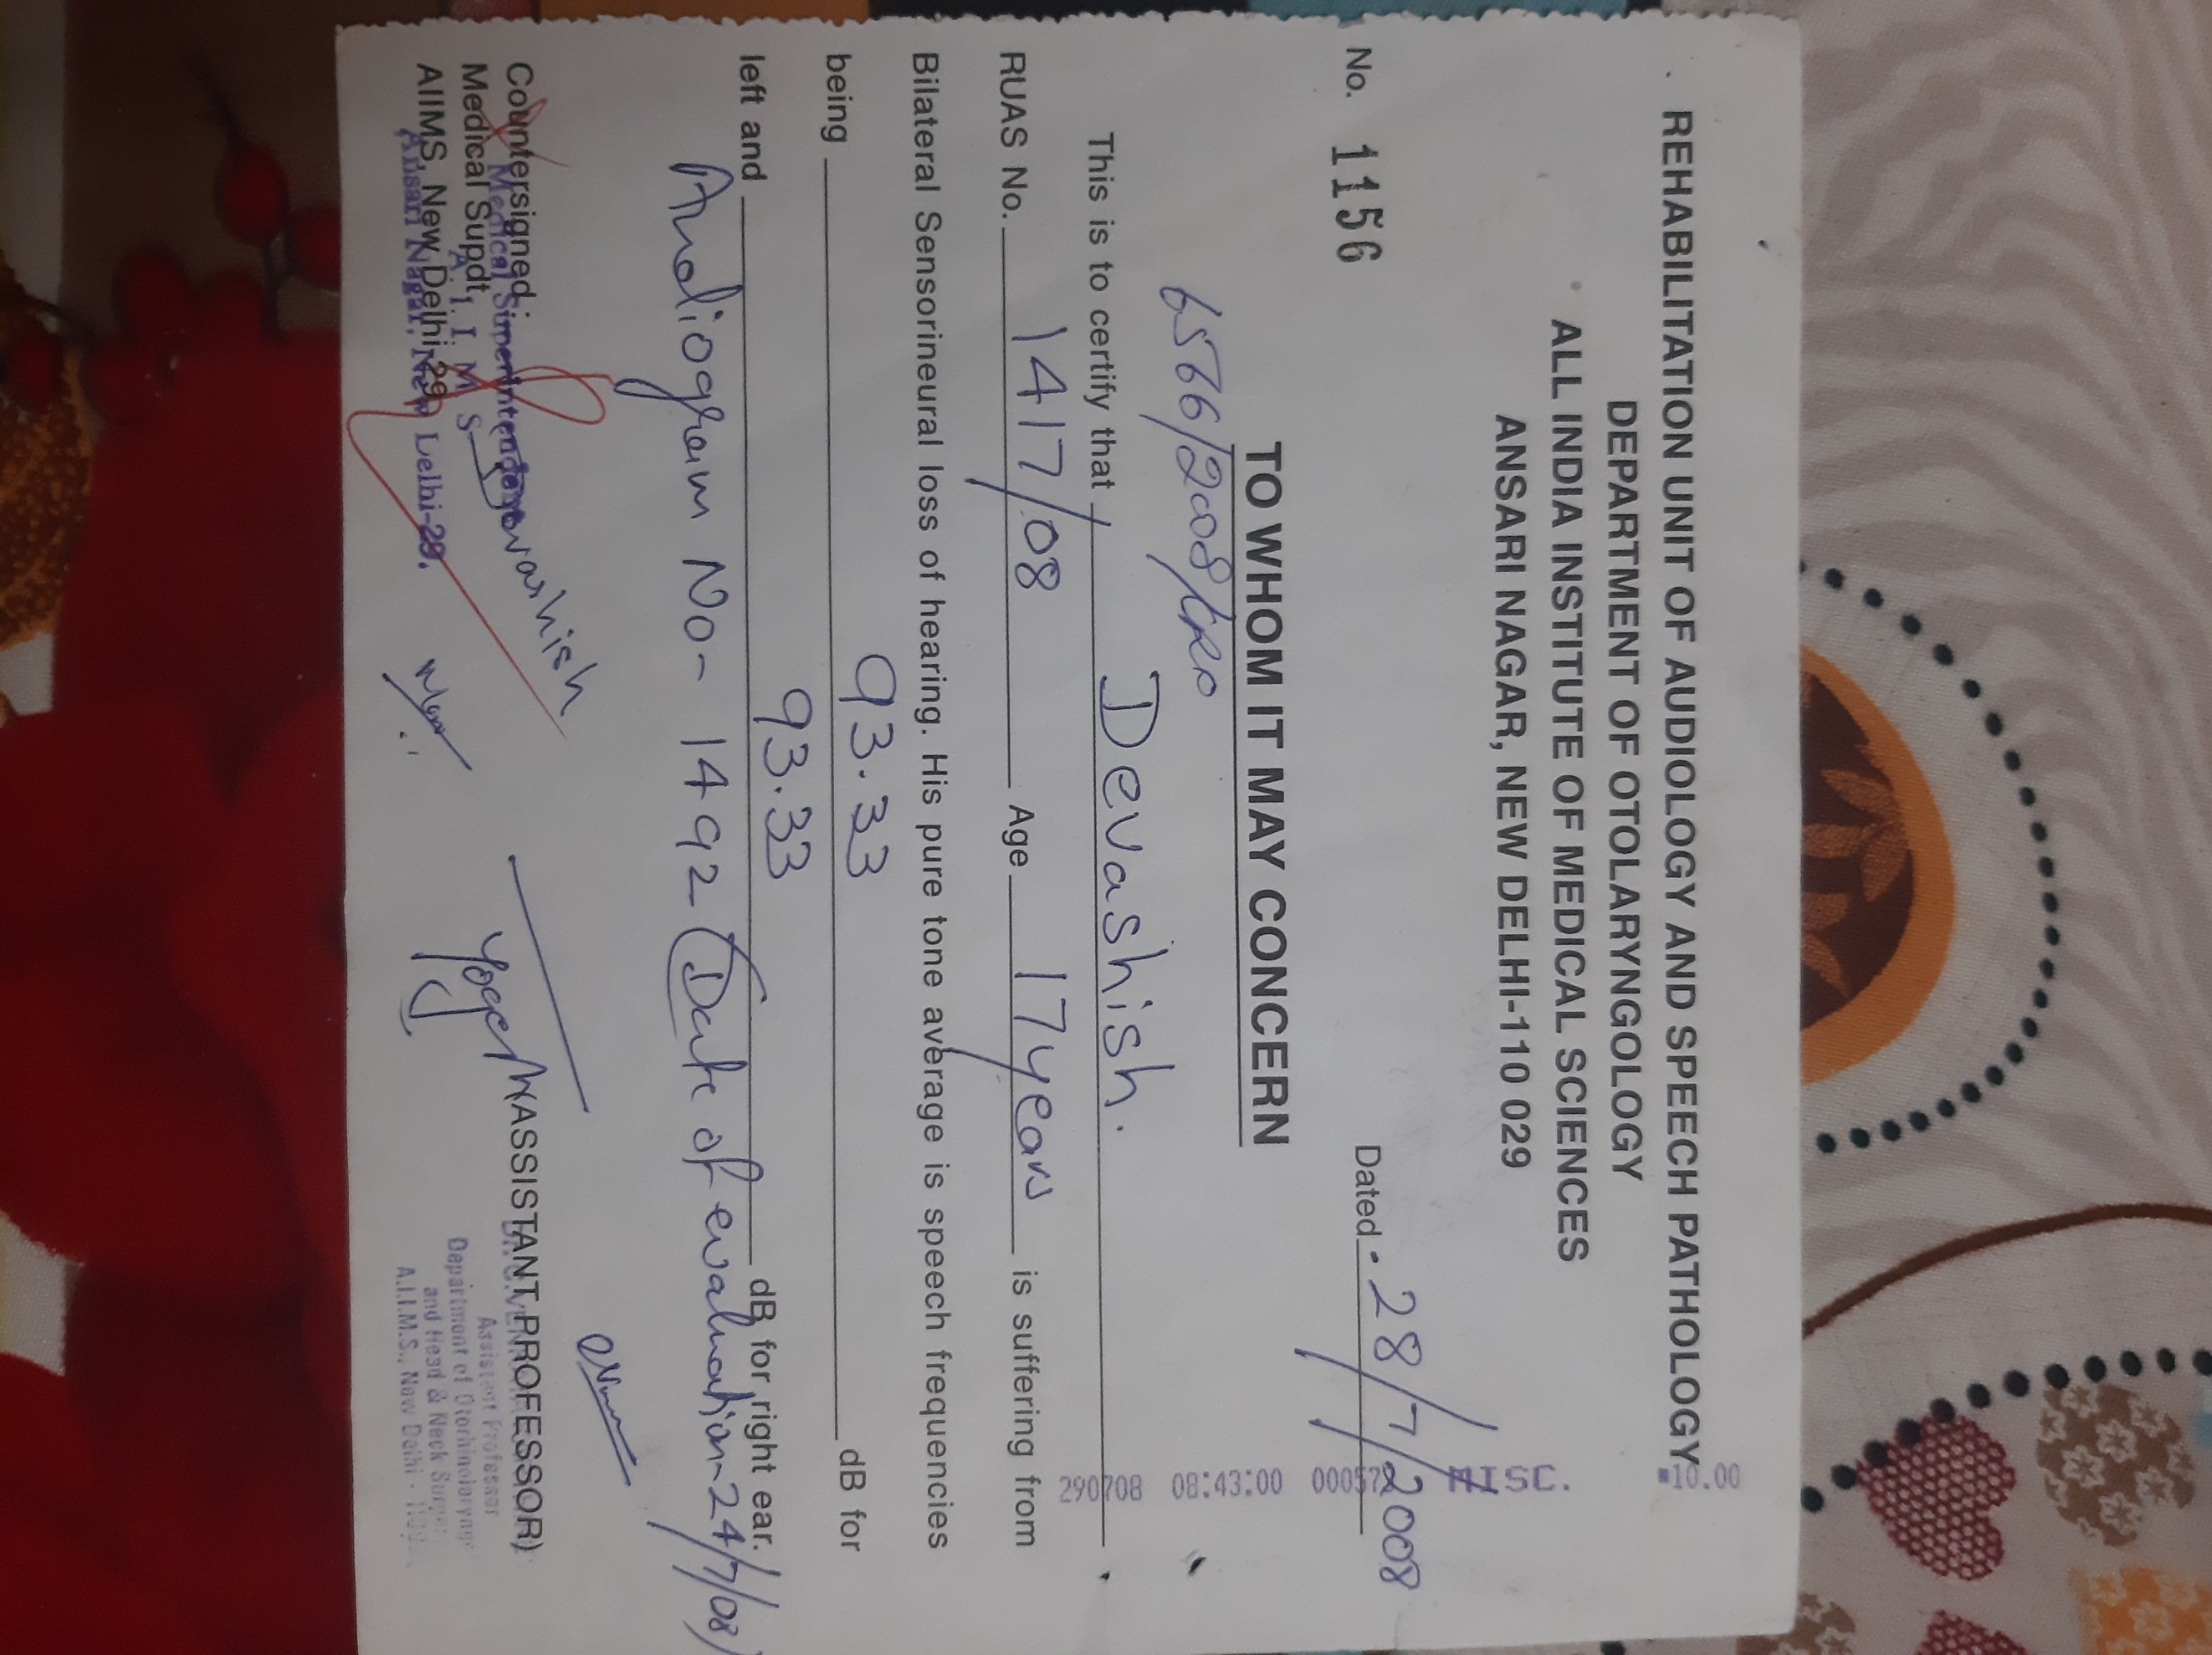 REHABILITATION UNIT OF AUDIOLOGY AND SPEECH PATHOLOGY
DEPARTMENT OF OTOLARYNGOLOGY
ALL INDIA INSTITUTE OF MEDICAL SCIENCES
ANSARI NAGAR, NEW DELHI-110 029
10.00
MISC.
290708 08:43:00
No. 1156 Dated 28/7/2008
TO WHOM IT MAY CONCERN
This is to certify that Devashish.
RUAS No. 1417/08 Age 17years is suffering from
Bilateral Sensorineural loss of hearing. His pure tone average is speech frequencies
being 93.33 dB for
left and 93.33 dB for right ear.
Audiogram No- 1492 (Date of evaluation-24/7/08)
Devashish
Countersigned
Medical Supdt,
AIIMS, New Delhi-29
Medical Superintendent
A. I. I. M. S
Ansari Nagar, New Delhi-29.
Yogesh
(ASSISTANT PROFESSOR)
Assistant Professor
Department of
and Head & Neck
A.I.I.M.S., New Delhi -